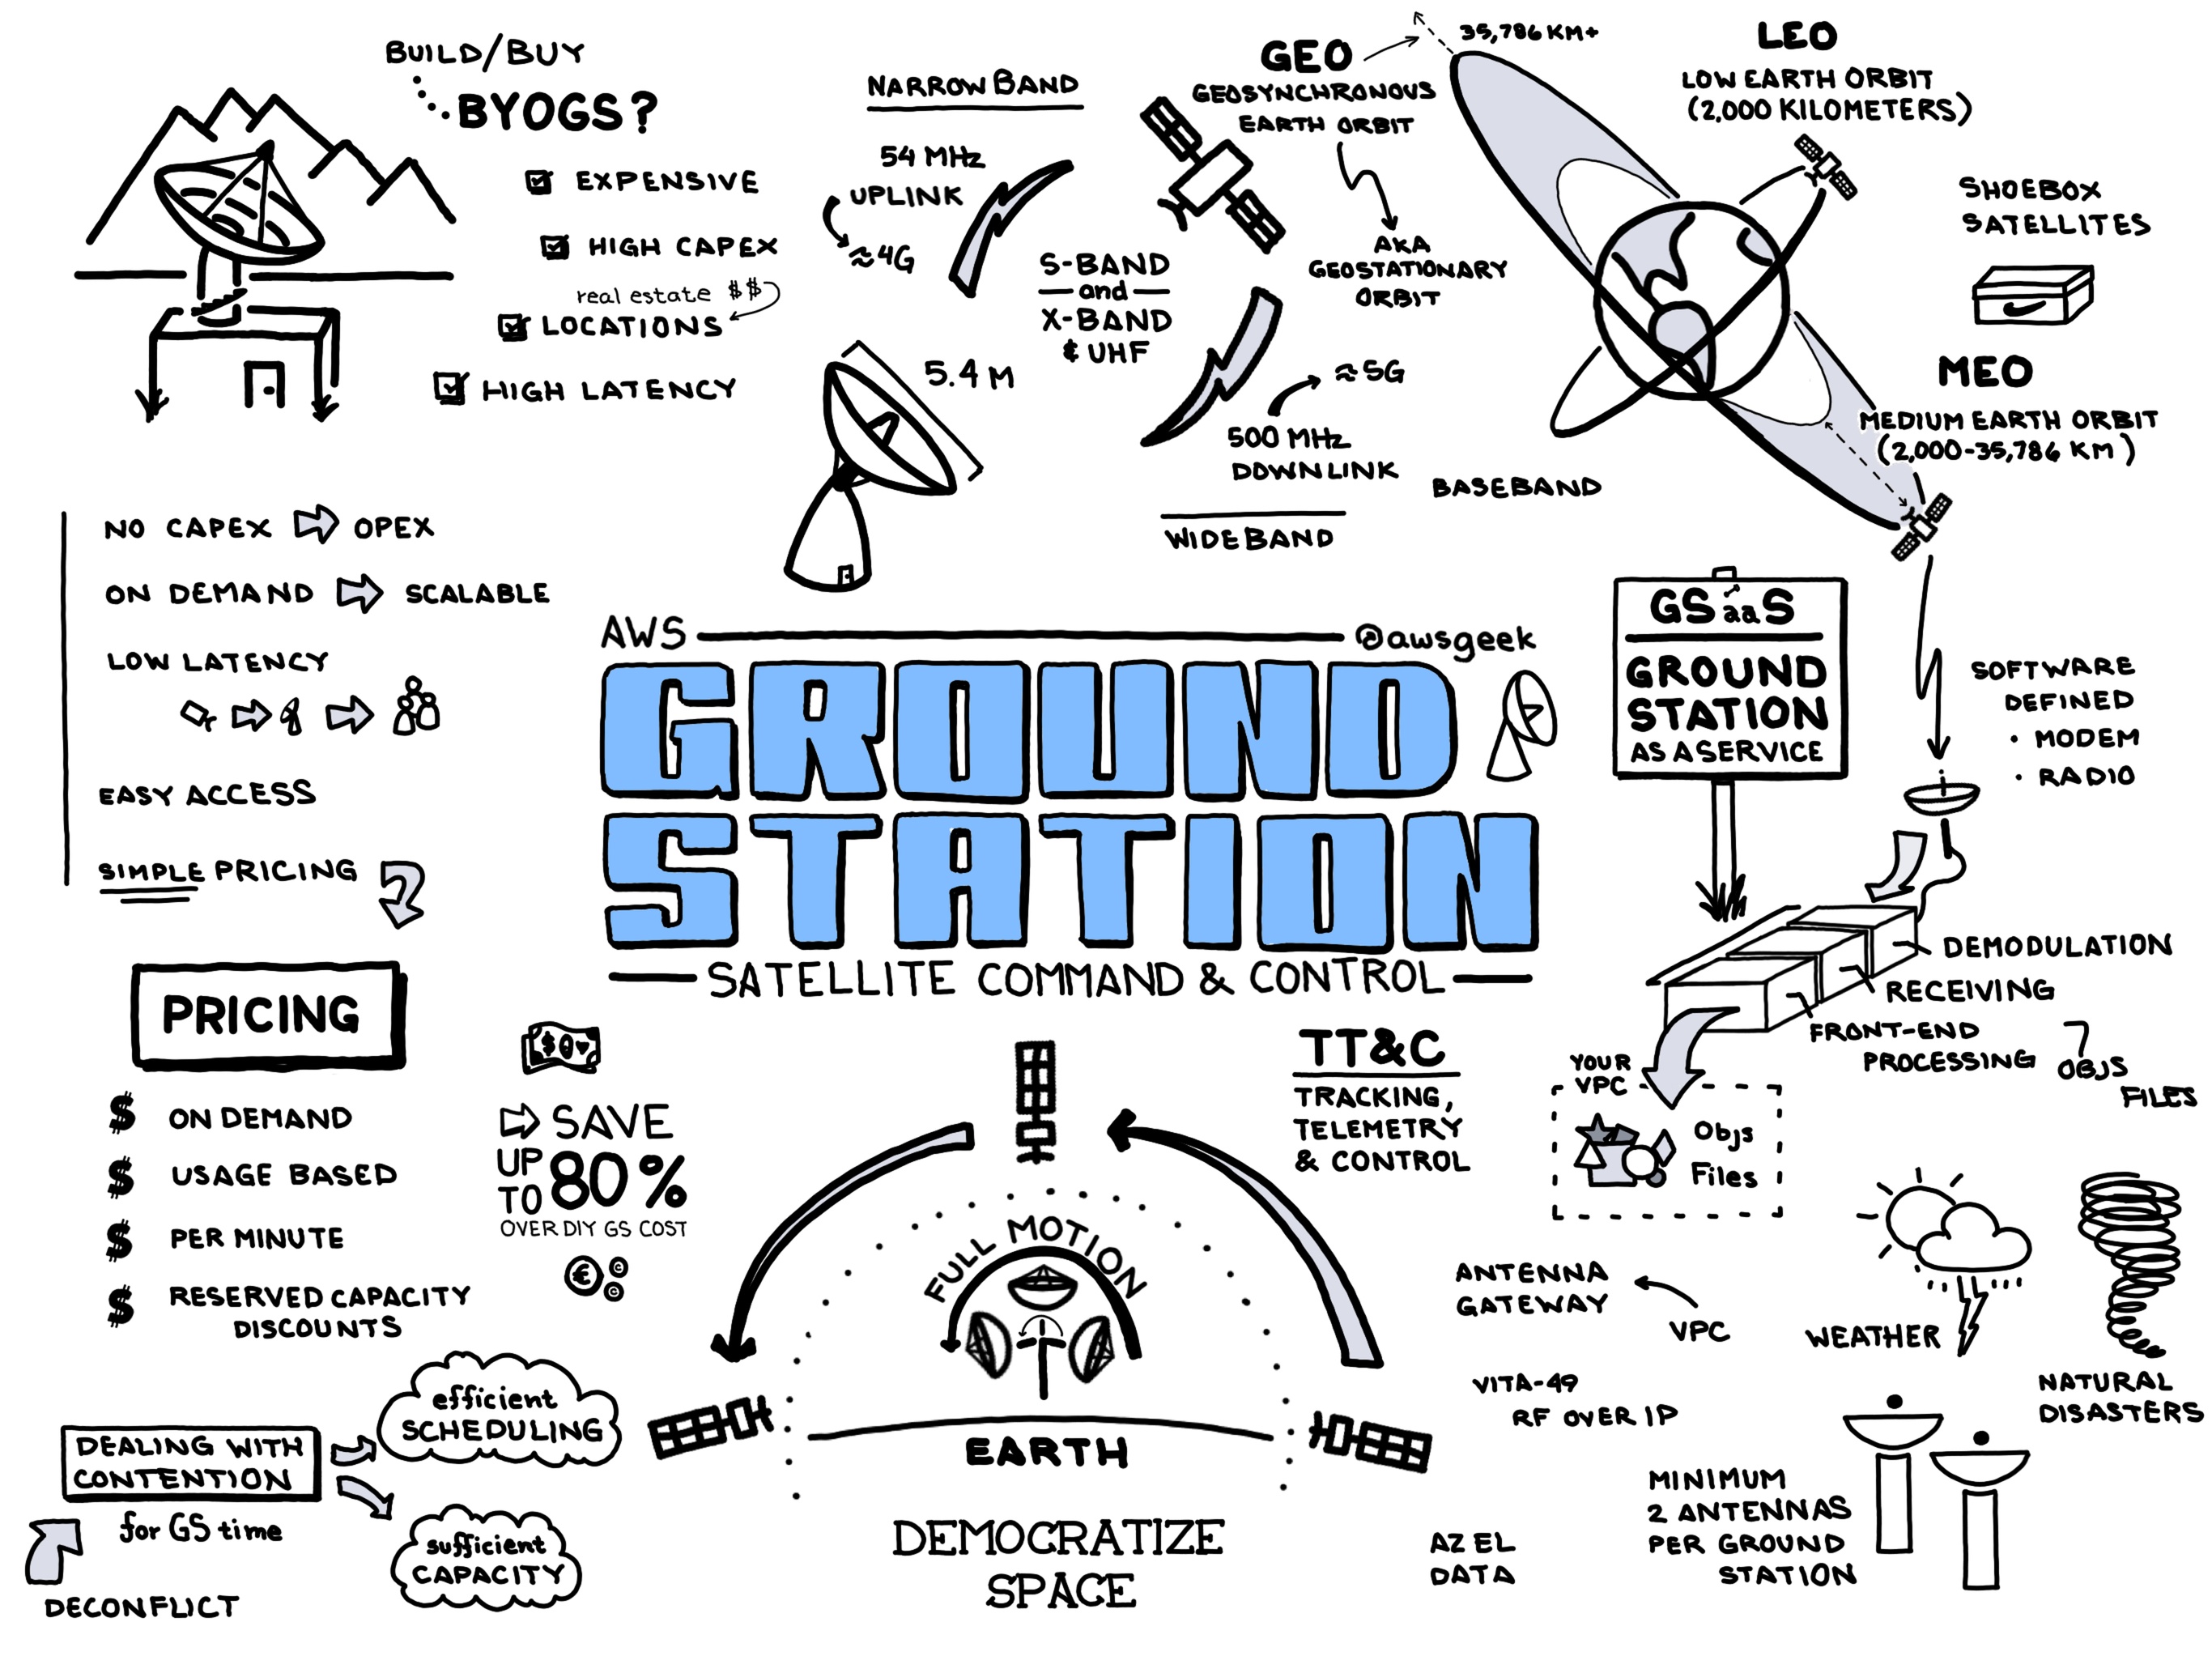 BUILD/BUY
BYOGS?
EXPENSIVE
HIGH CAPEX
real estate $$
LOCATIONS
HIGH LATENCY
NARROW BAND
54 MHz
UPLINK
≈4G
5.4 M
S-BAND
and
X-BAND
& UHF
≈5G
500 MHz
DOWNLINK
WIDEBAND
BASEBAND
GEO
GEOSYNCHRONOUS
EARTH ORBIT
AKA
GEOSTATIONARY
ORBIT
35,786 KM+
LEO
LOW EARTH ORBIT
(2,000 KILOMETERS)
SHOEBOX
SATELLITES
MEO
MEDIUM EARTH ORBIT
(2,000-35,786 KM)
NO CAPEX OPEX
ON DEMAND SCALABLE
LOW LATENCY
EASY ACCESS
SIMPLE PRICING
AWS @awsgeek
GROUND
STATION
SATELLITE COMMAND & CONTROL
GSaaS
GROUND
STATION
AS A SERVICE
SOFTWARE
DEFINED
• MODEM
• RADIO
DEMODULATION
RECEIVING
FRONT-END
PROCESSING
OBJS
FILES
YOUR
VPC
Objs
Files
PRICING
$ ON DEMAND
$ USAGE BASED
$ PER MINUTE
$ RESERVED CAPACITY
DISCOUNTS
$
SAVE
UP
TO 80%
OVER DIY GS COST
€ c
c
TT&C
TRACKING,
TELEMETRY
& CONTROL
FULL MOTION
EARTH
DEMOCRATIZE
SPACE
ANTENNA
GATEWAY
VPC
VITA-49
RF OVER IP
AZ EL
DATA
WEATHER
NATURAL
DISASTERS
MINIMUM
2 ANTENNAS
PER GROUND
STATION
DEALING WITH
CONTENTION
for GS time
DECONFLICT
efficient
SCHEDULING
sufficient
CAPACITY